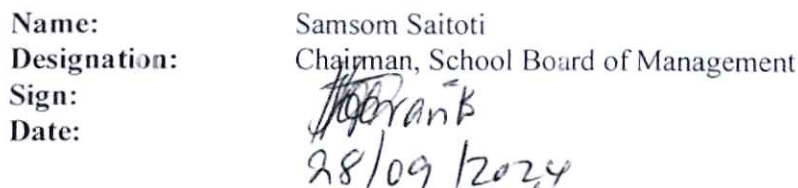 Name: Samsom Saitoti
Designation: Chairman, School Board of Management
Sign:
Date: 28/09/2024